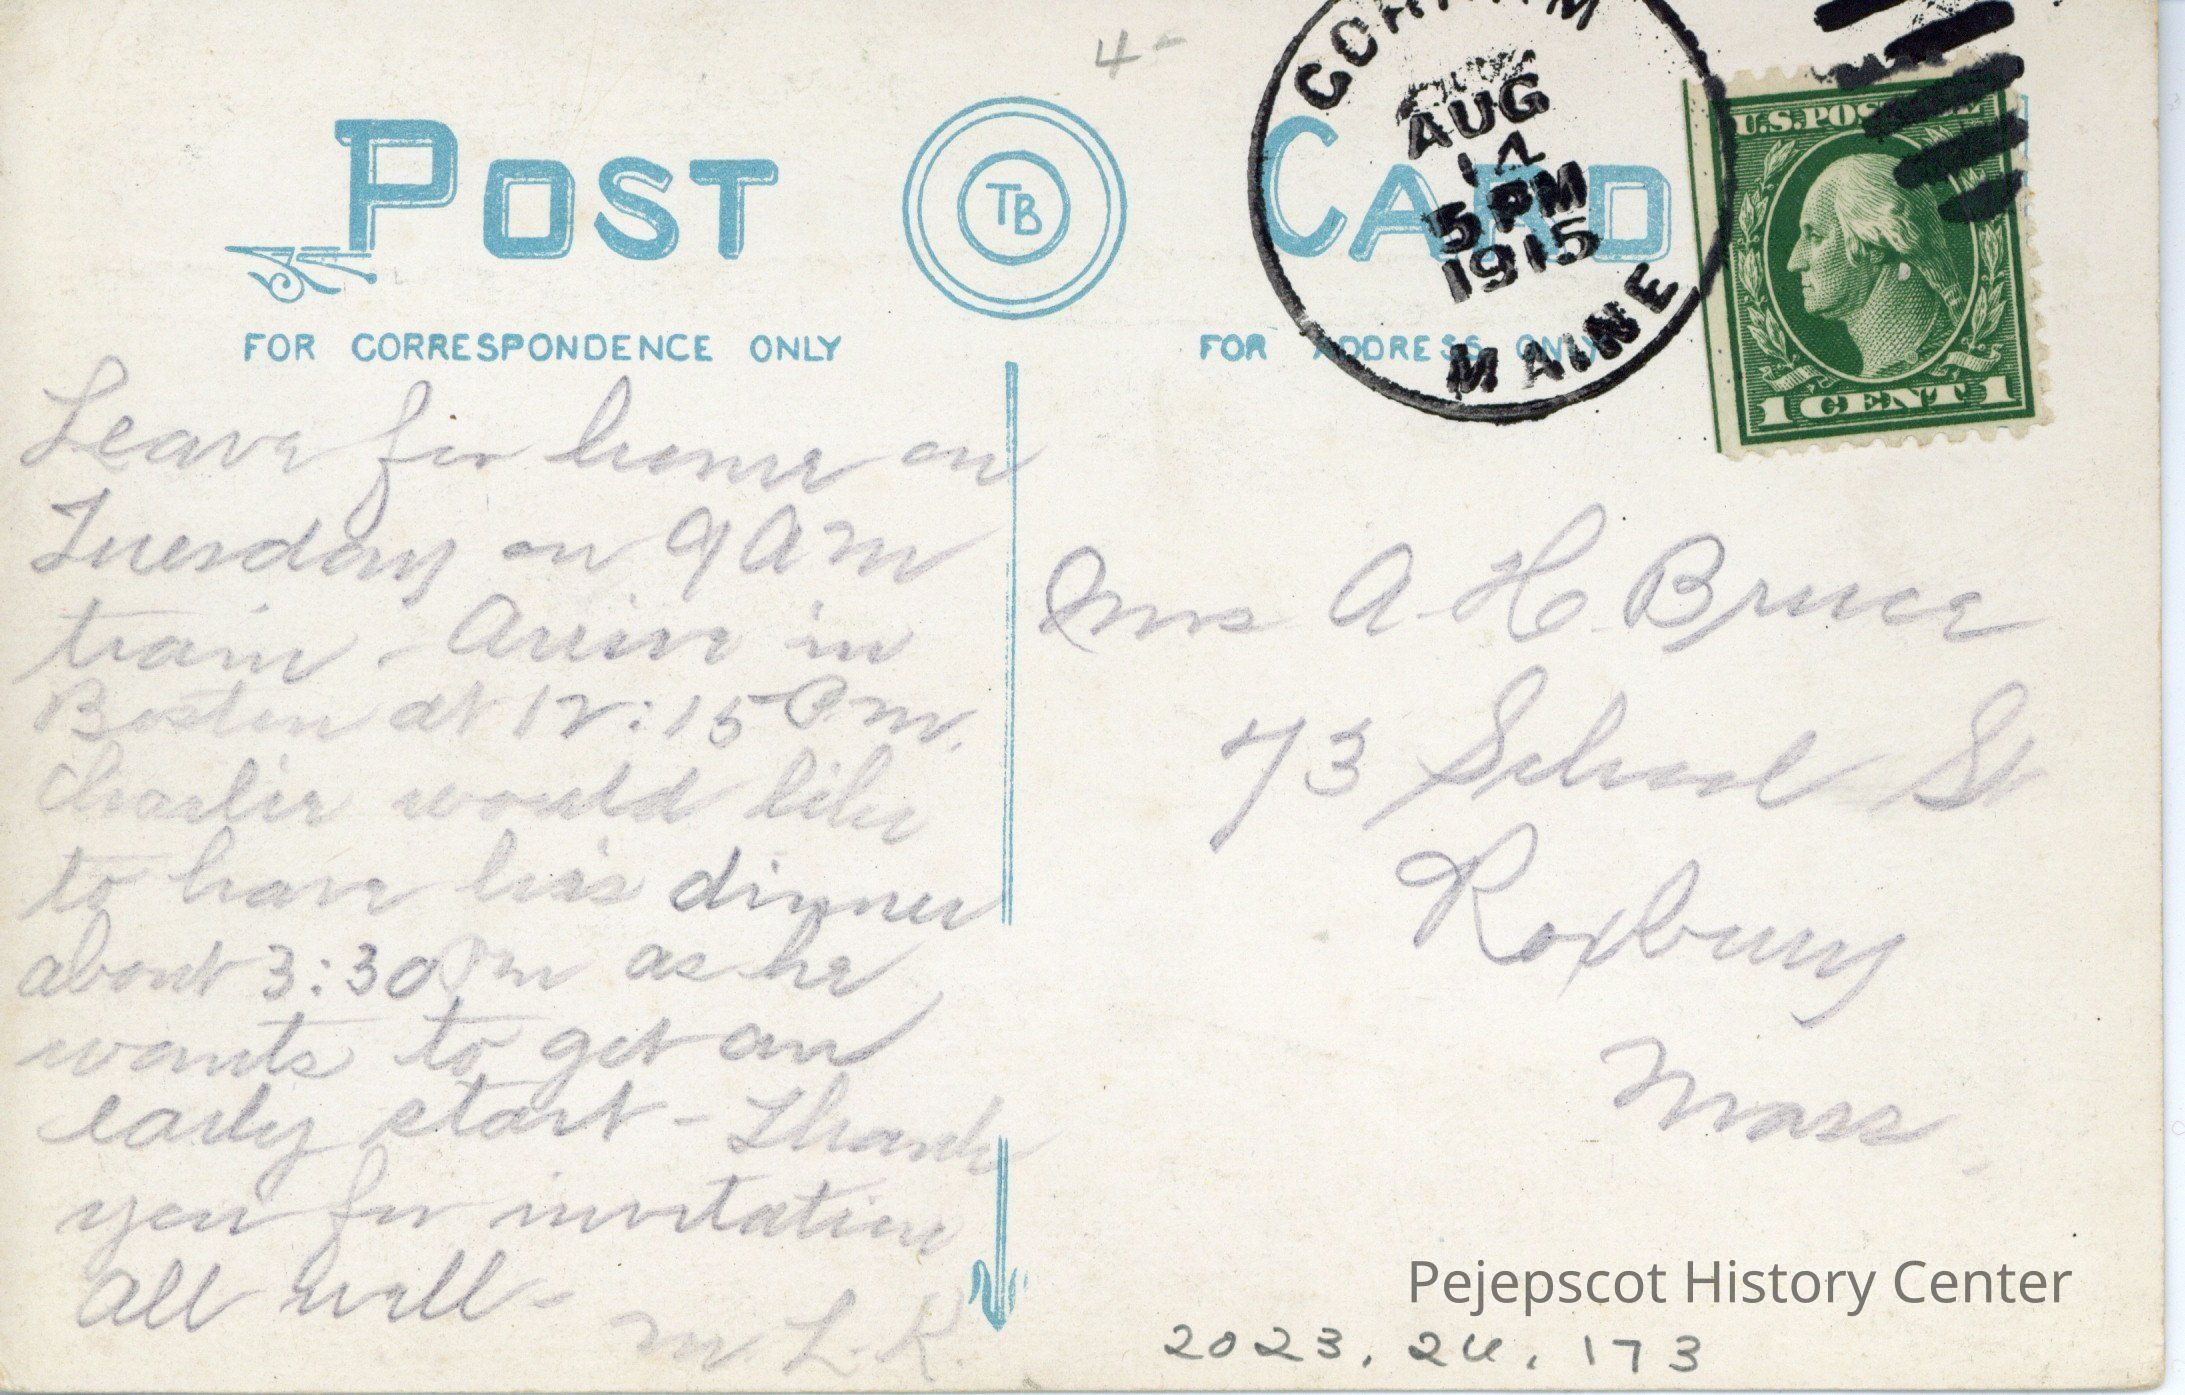 4-
POST TB CARD
FOR CORRESPONDENCE ONLY
FOR ADDRESS ONLY
GORHAM
AUG
5 PM
1915
MAINE
U.S. POSTAGE
1 CENT 1
Leave for home on
Tuesday on 9 AM
train - Arrive in
Boston at 12:15 P.M.
Charlie would like
to have his dinner
about 3:30 PM as he
wants to get an
early start - Thank
you for invitation
All well -
M. L. K.
Mrs A. H. Bruce
73 School St
Roxbury
Mass.
Pejepscot History Center
2023.24.173